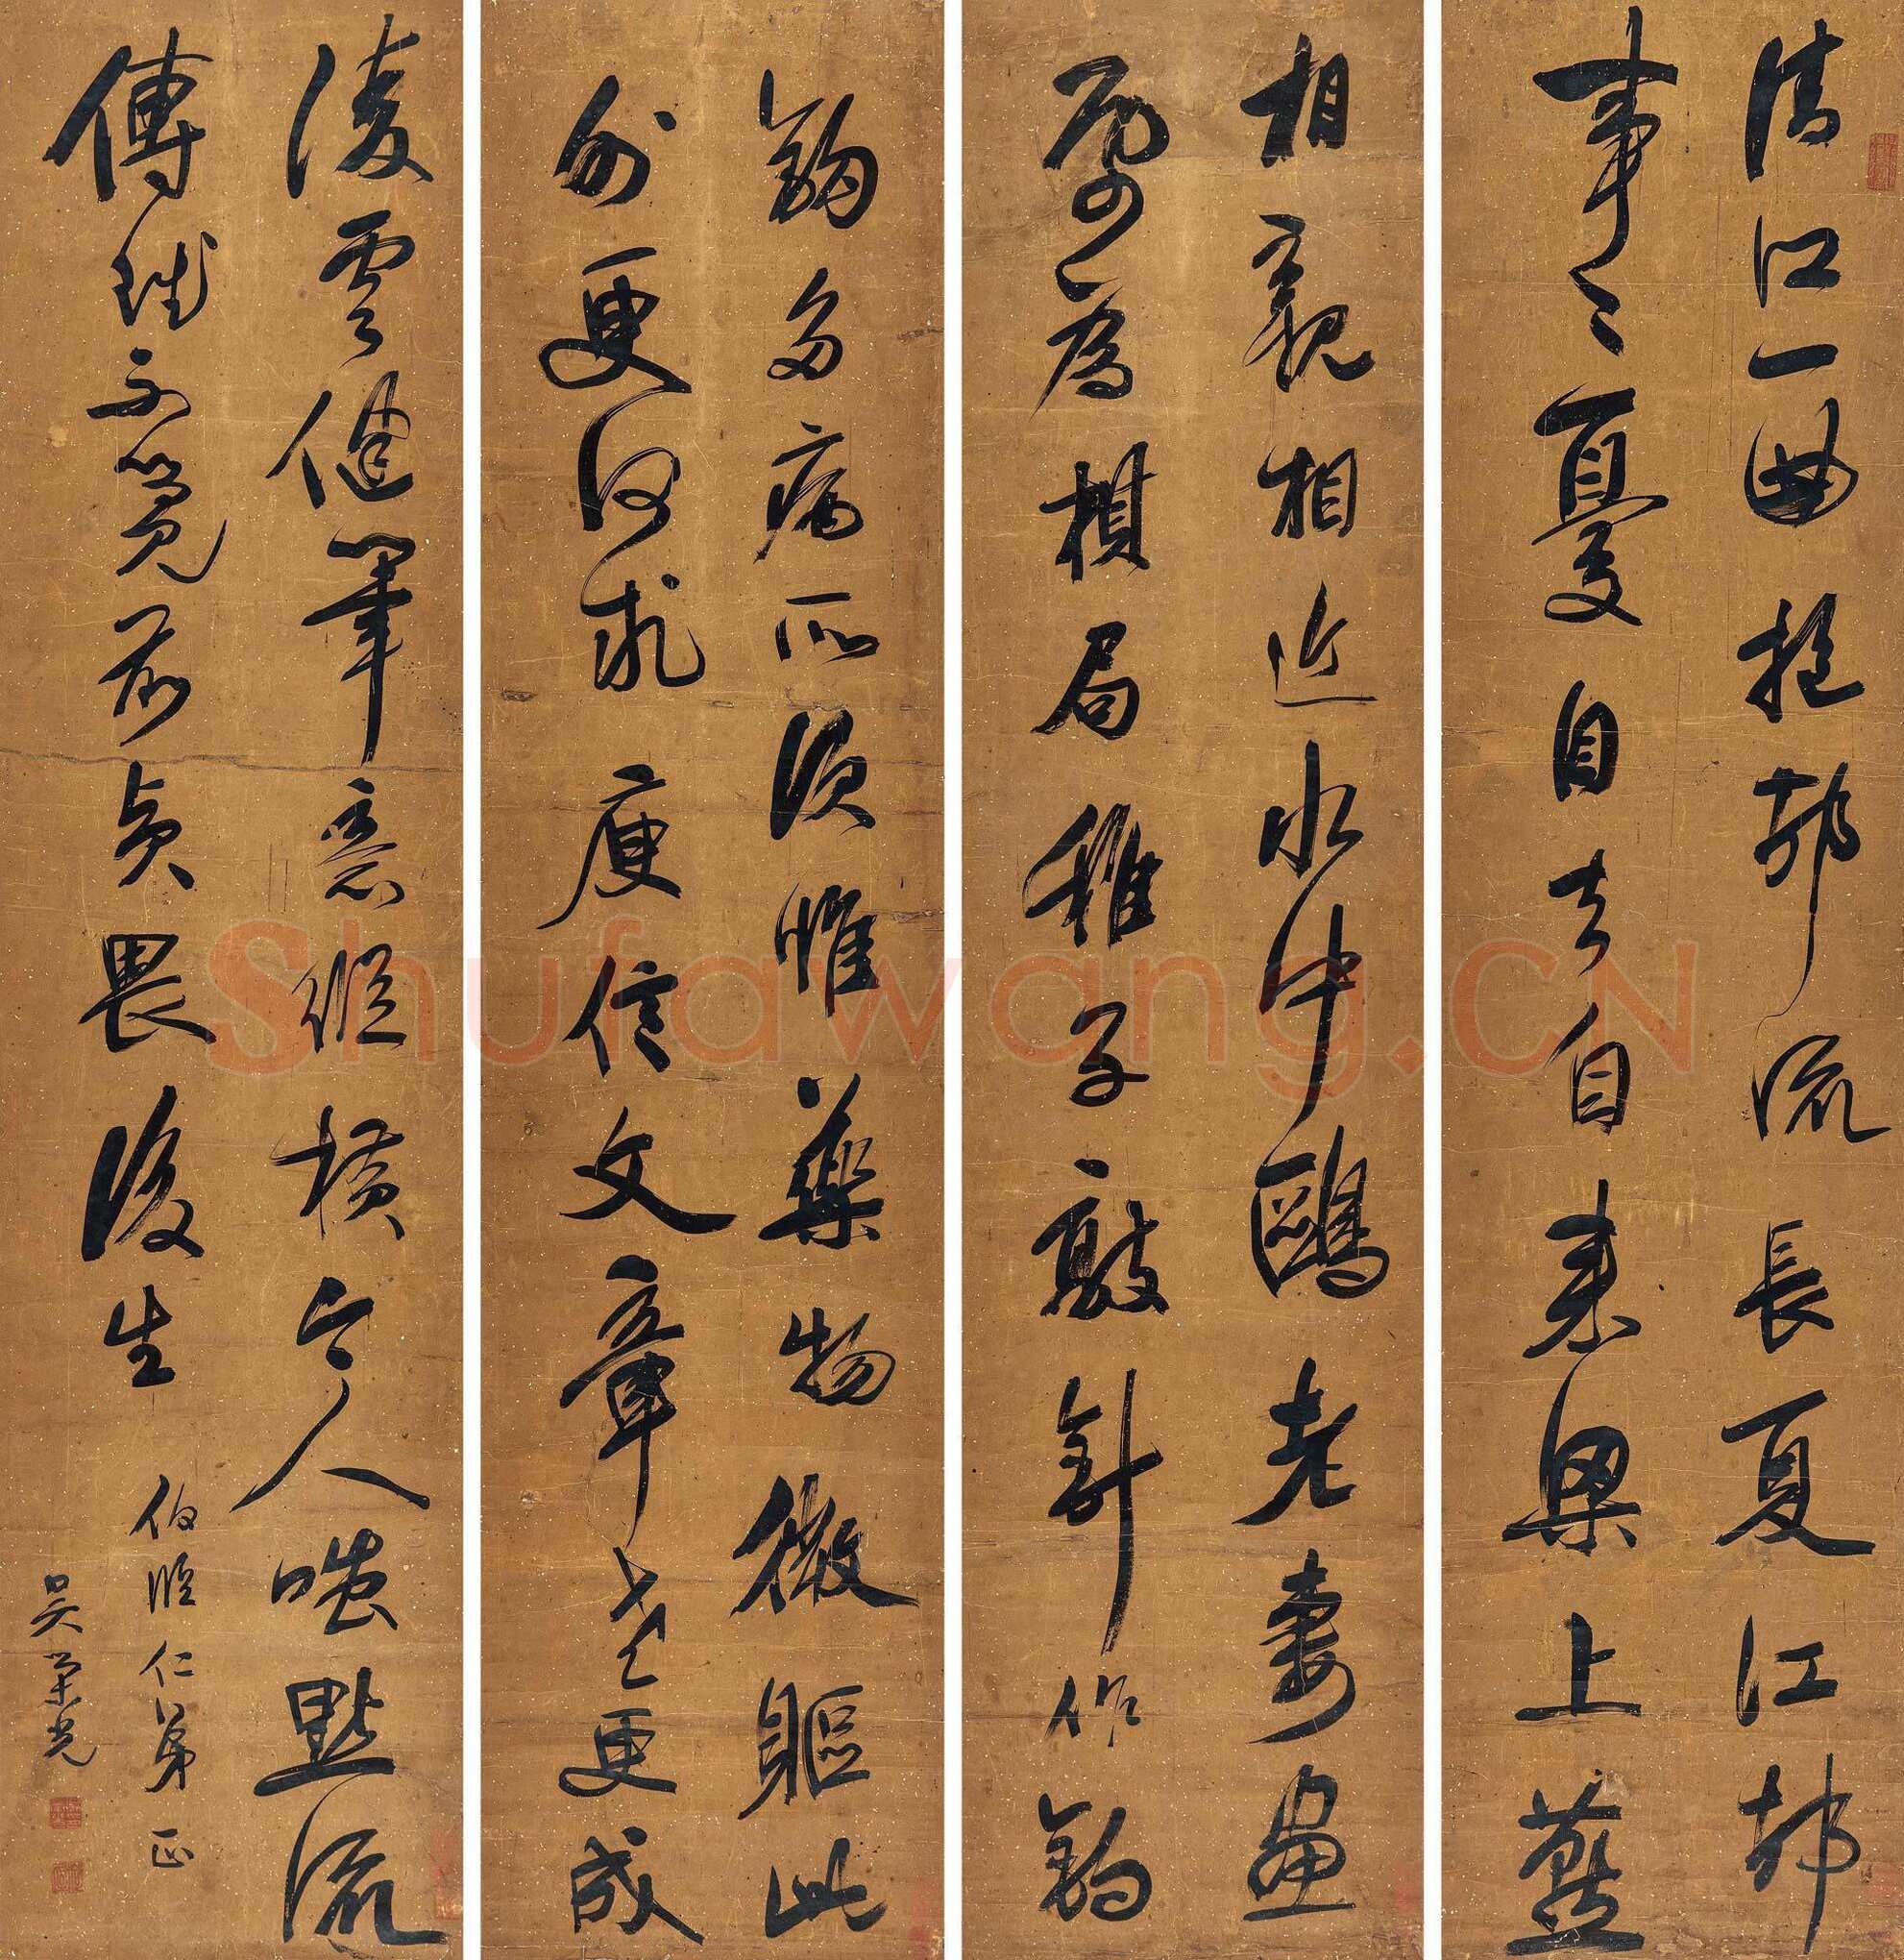 清江一曲抱邨流長夏江邨
事〻憂自去自来梁上燕
相親相近水中鷗老妻畫
帋為棋局稚子敲針作鈎
鈎多病所須惟藥物微軀此
外更何求庾信文章老更成
凌雲健筆意縱橫今人嗤點流
傳賦不覺前賢畏後生
伯臨仁弟正
吳榮光
Shufawang.CN